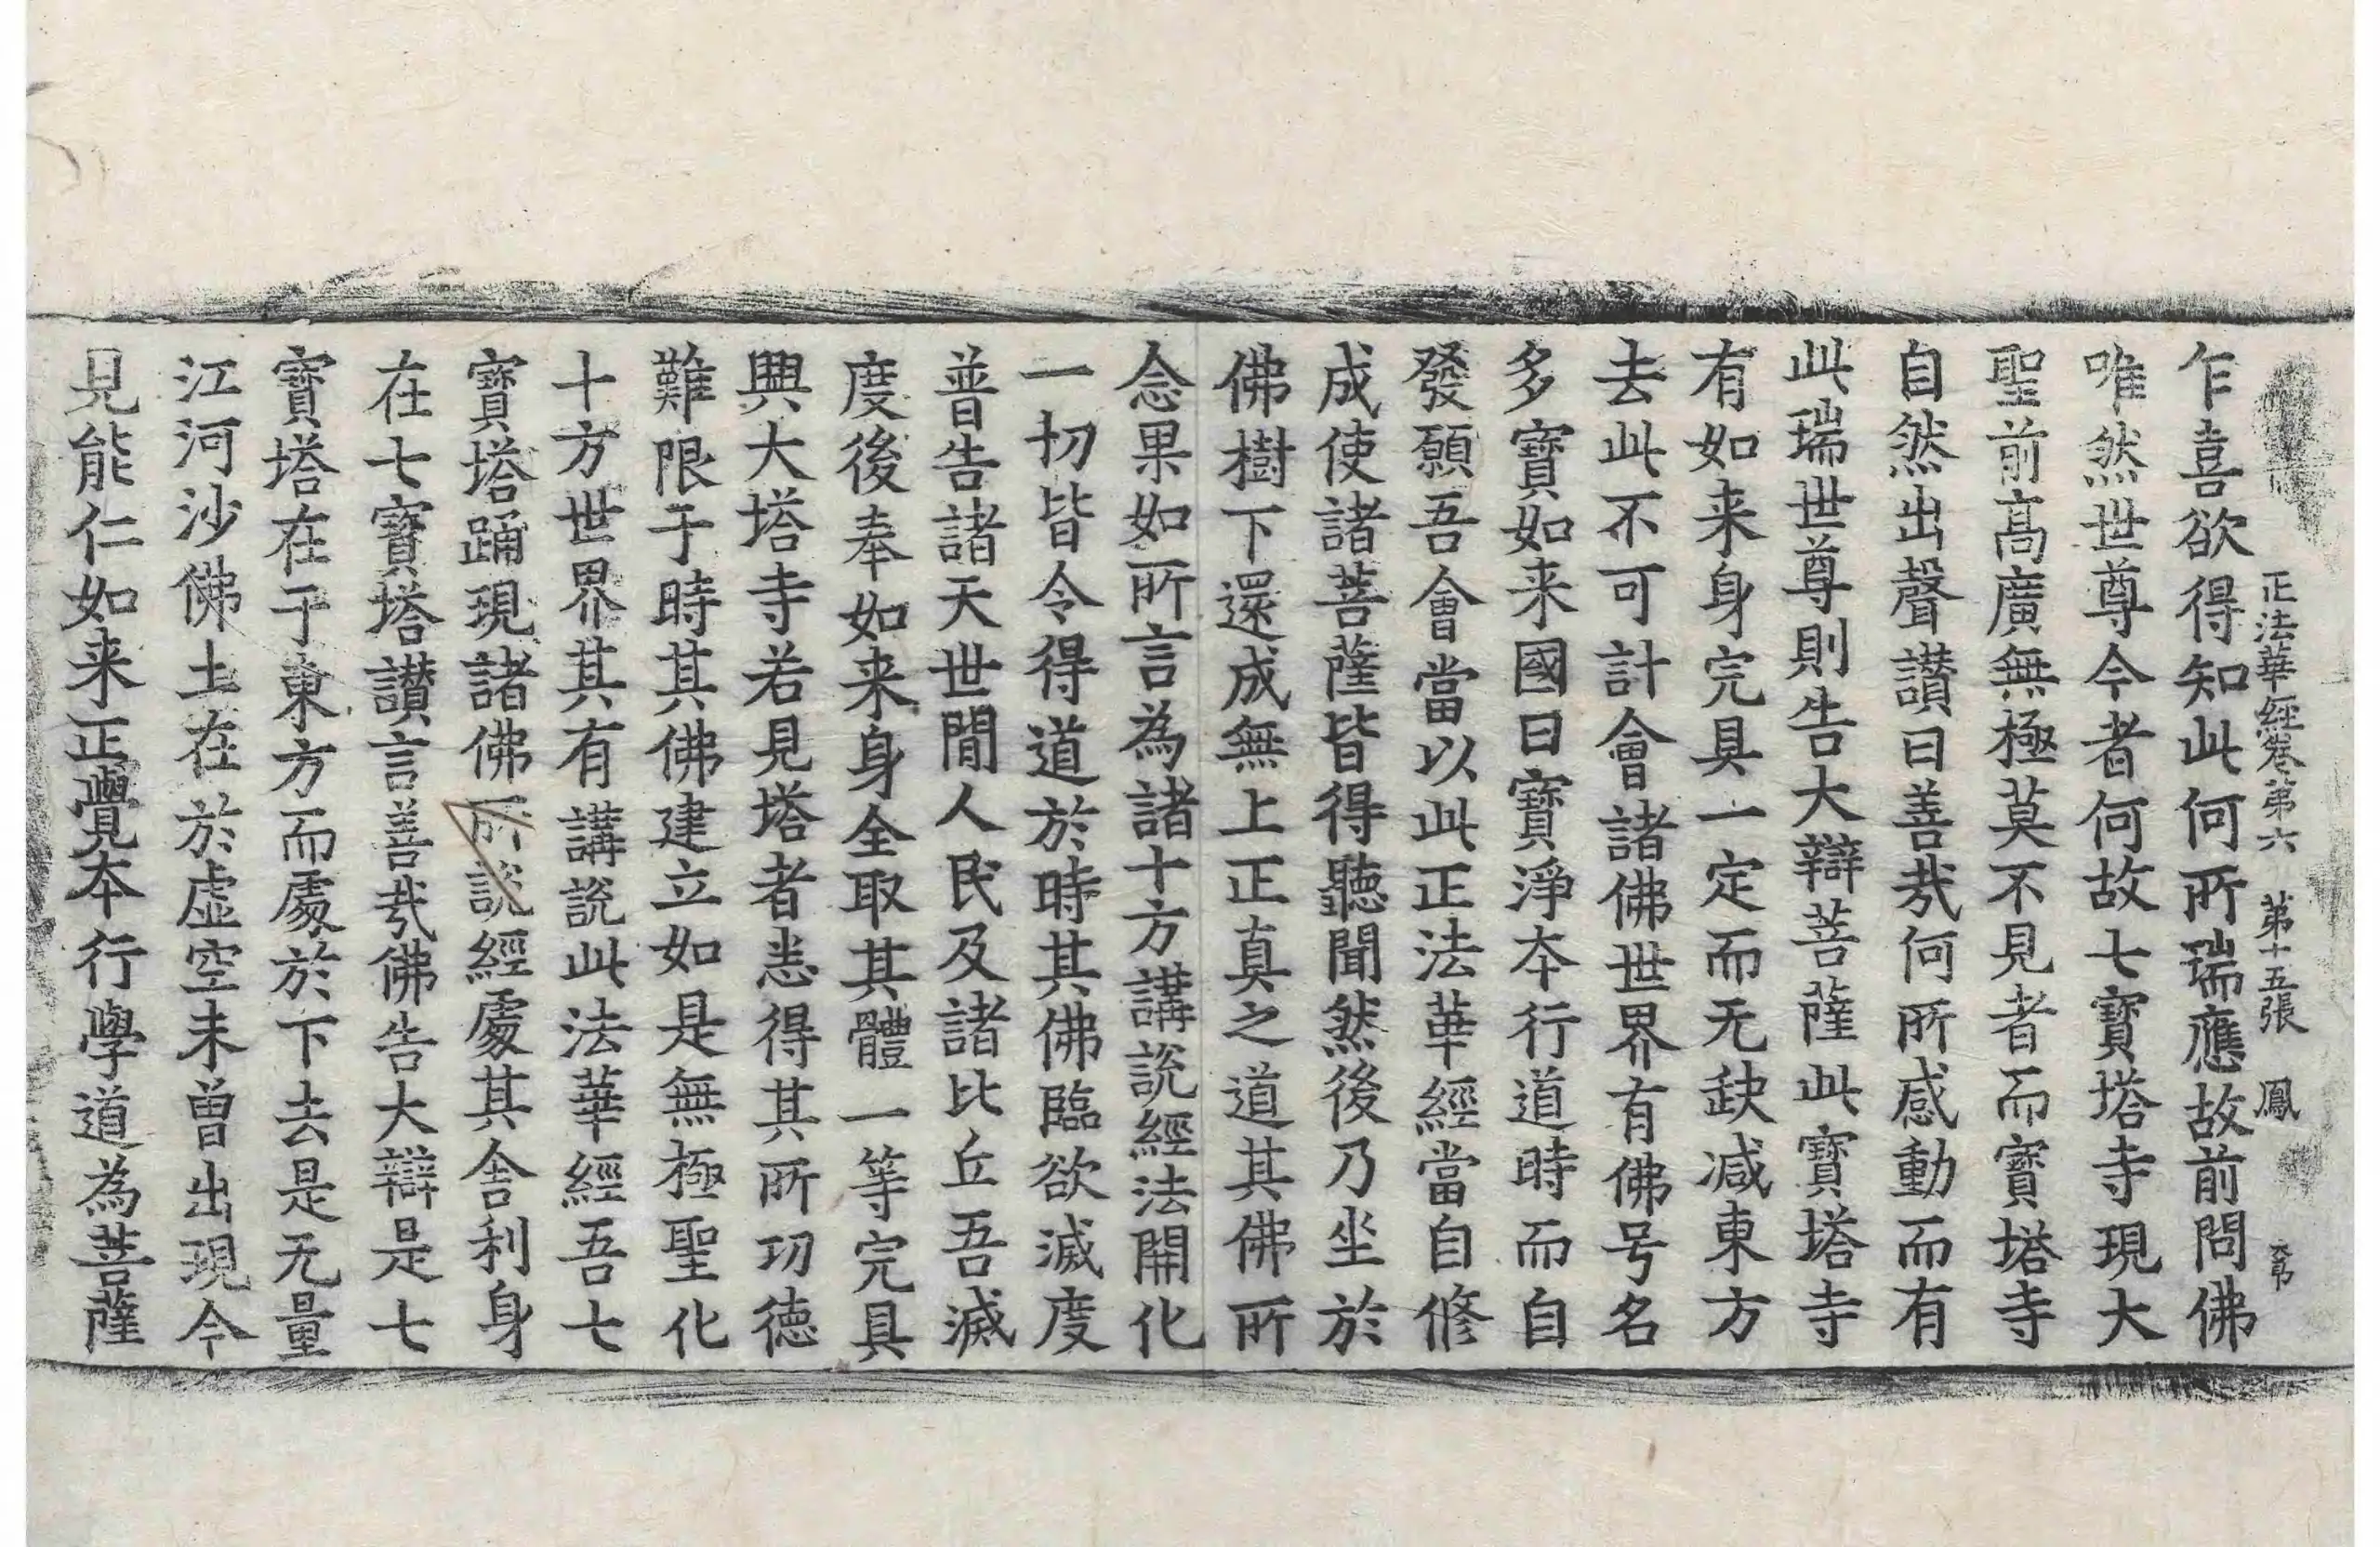 正法華經卷第六　第十五張　鳳
乍喜欲得知此何所瑞應故前問佛
唯然世尊今者何故七寶塔寺現大
聖前高廣無極莫不見者而寶塔寺
自然出聲讃曰善㢤何所感動而有
此瑞世尊則告大辯菩薩此寶塔寺
有如来身完具一定而无缺减東方
去此不可計會諸佛世界有佛号名
多寶如来國曰寶淨夲行道時而自
發願吾會當以此正法華經當自修
成使諸菩薩皆得聽聞然後乃坐於
佛樹下還成無上正真之道其佛所
念果如所言為諸十方講說經法開化
一切皆令得道於時其佛臨欲滅度
普告諸天世間人民及諸比丘吾滅
度後奉如来身全取其體一等完具
興大塔寺若見塔者悉得其所功德
難限于時其佛建立如是無極聖化
十方世界其有講說此法華經吾七
寶塔踊現諸佛所說經處其舍利身
在七寶塔讃言善㢤佛告大辯是七
寶塔在于東方而處於下去是无量
江河沙佛土在於虛空未曾出現今
見能仁如来正覺夲行學道為菩薩